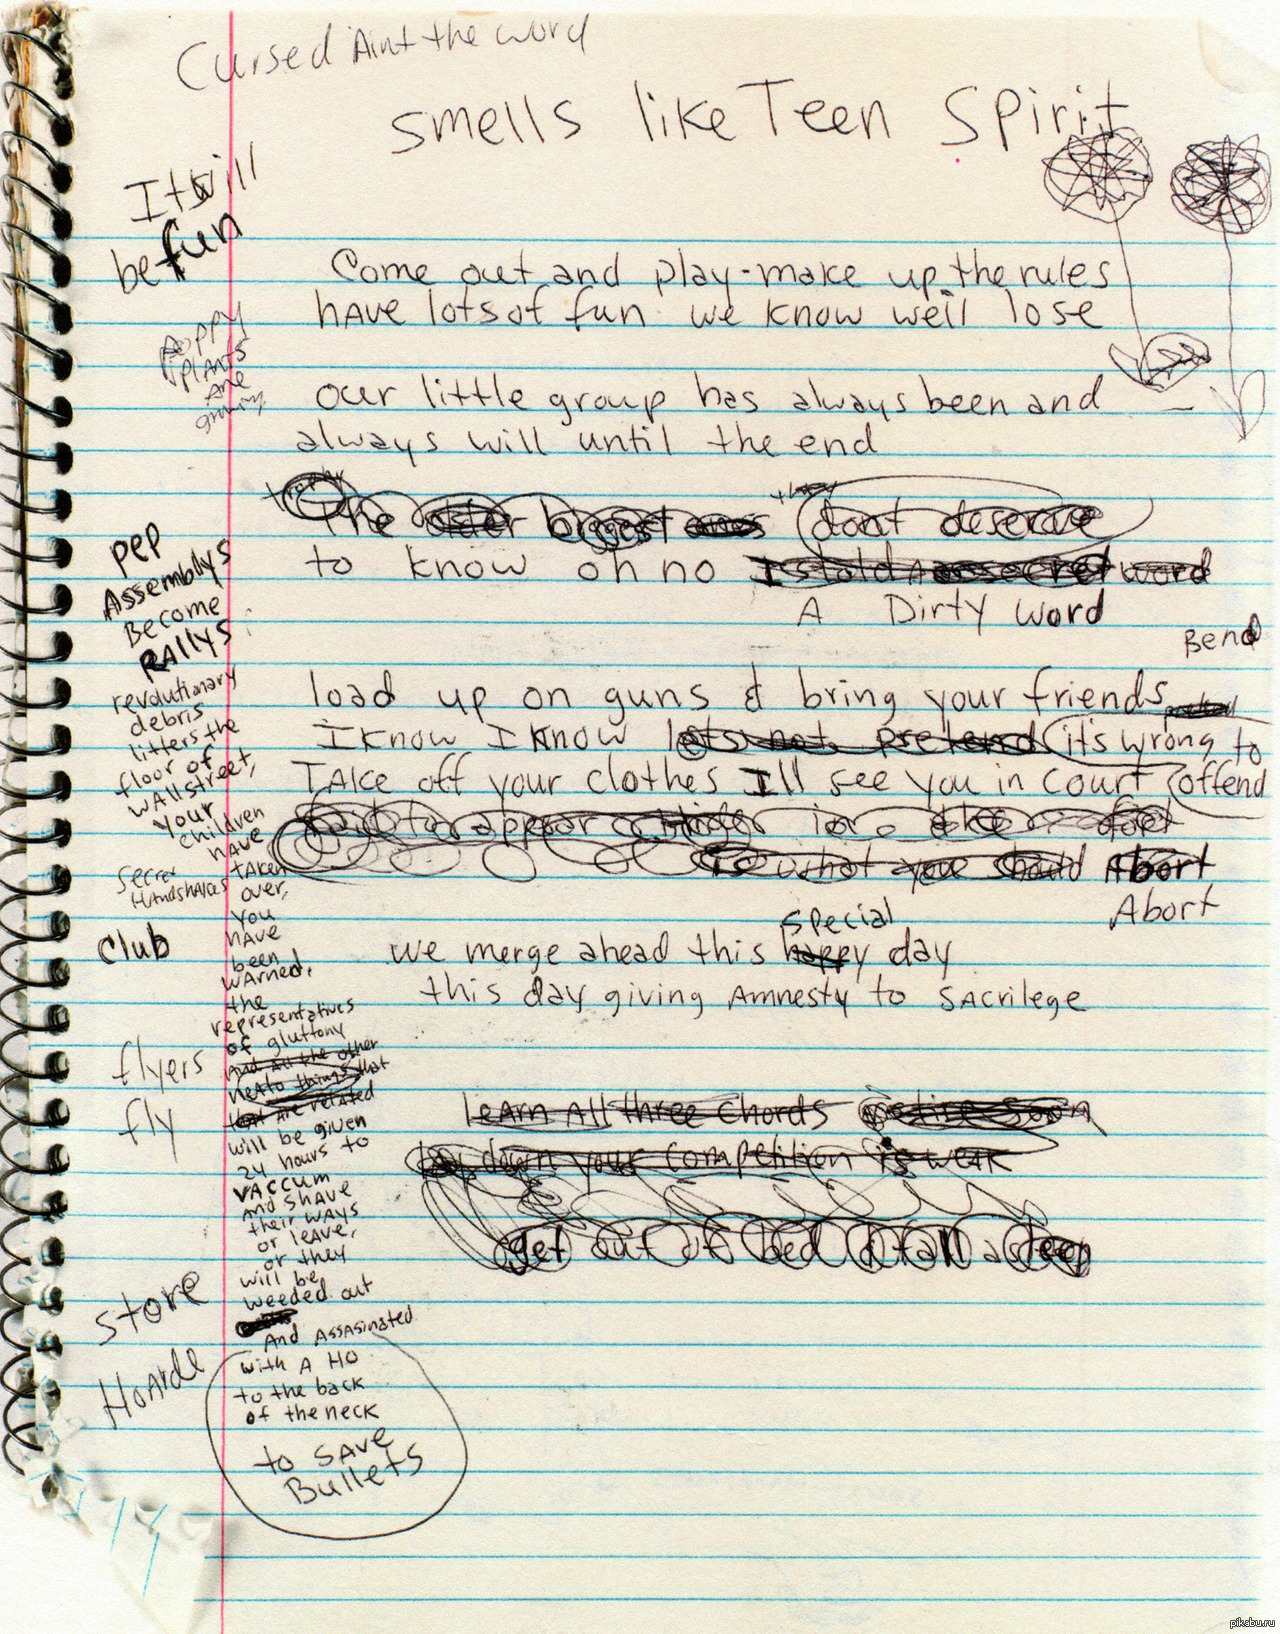 Cursed Aint the word
smells like Teen Spirit
It will
be fun
Come out and play - make up the rules
have lots of fun we know we'll lose
Poppy
Plants
Are
growing
our little group has always been and
always will until the end
they
The biggest dont deserve
to know oh no word
A Dirty word
pep
Assemblys
Become
RAllys
Bend
load up on guns & bring your friends
I know I know lets not pretend its wrong to
offend
TAke off your clothes Ill see you in court
is what you should Abort
Abort
revolutionary
debris
litters the
floor of
wAllstreet,
your
children
hAve
tAken
over,
you
hAve
been
wArned.
the
representatives
of gluttony
And All the other
neAto things that
Are relAted
will be given
24 hours to
vAccum
And shAve
their wAys
or leAve,
or they
will be
weeded out
And AssAsinated
with A Ho
to the back
of the neck
to sAve
Bullets
Secret
HAndshAkes
Club
flyers
fly
store
HoArde
special
we merge ahead this happy day
this day giving Amnesty to SAcrilege
leArn All three chords
down your competition is weAk
get out of bed
pikabu.ru